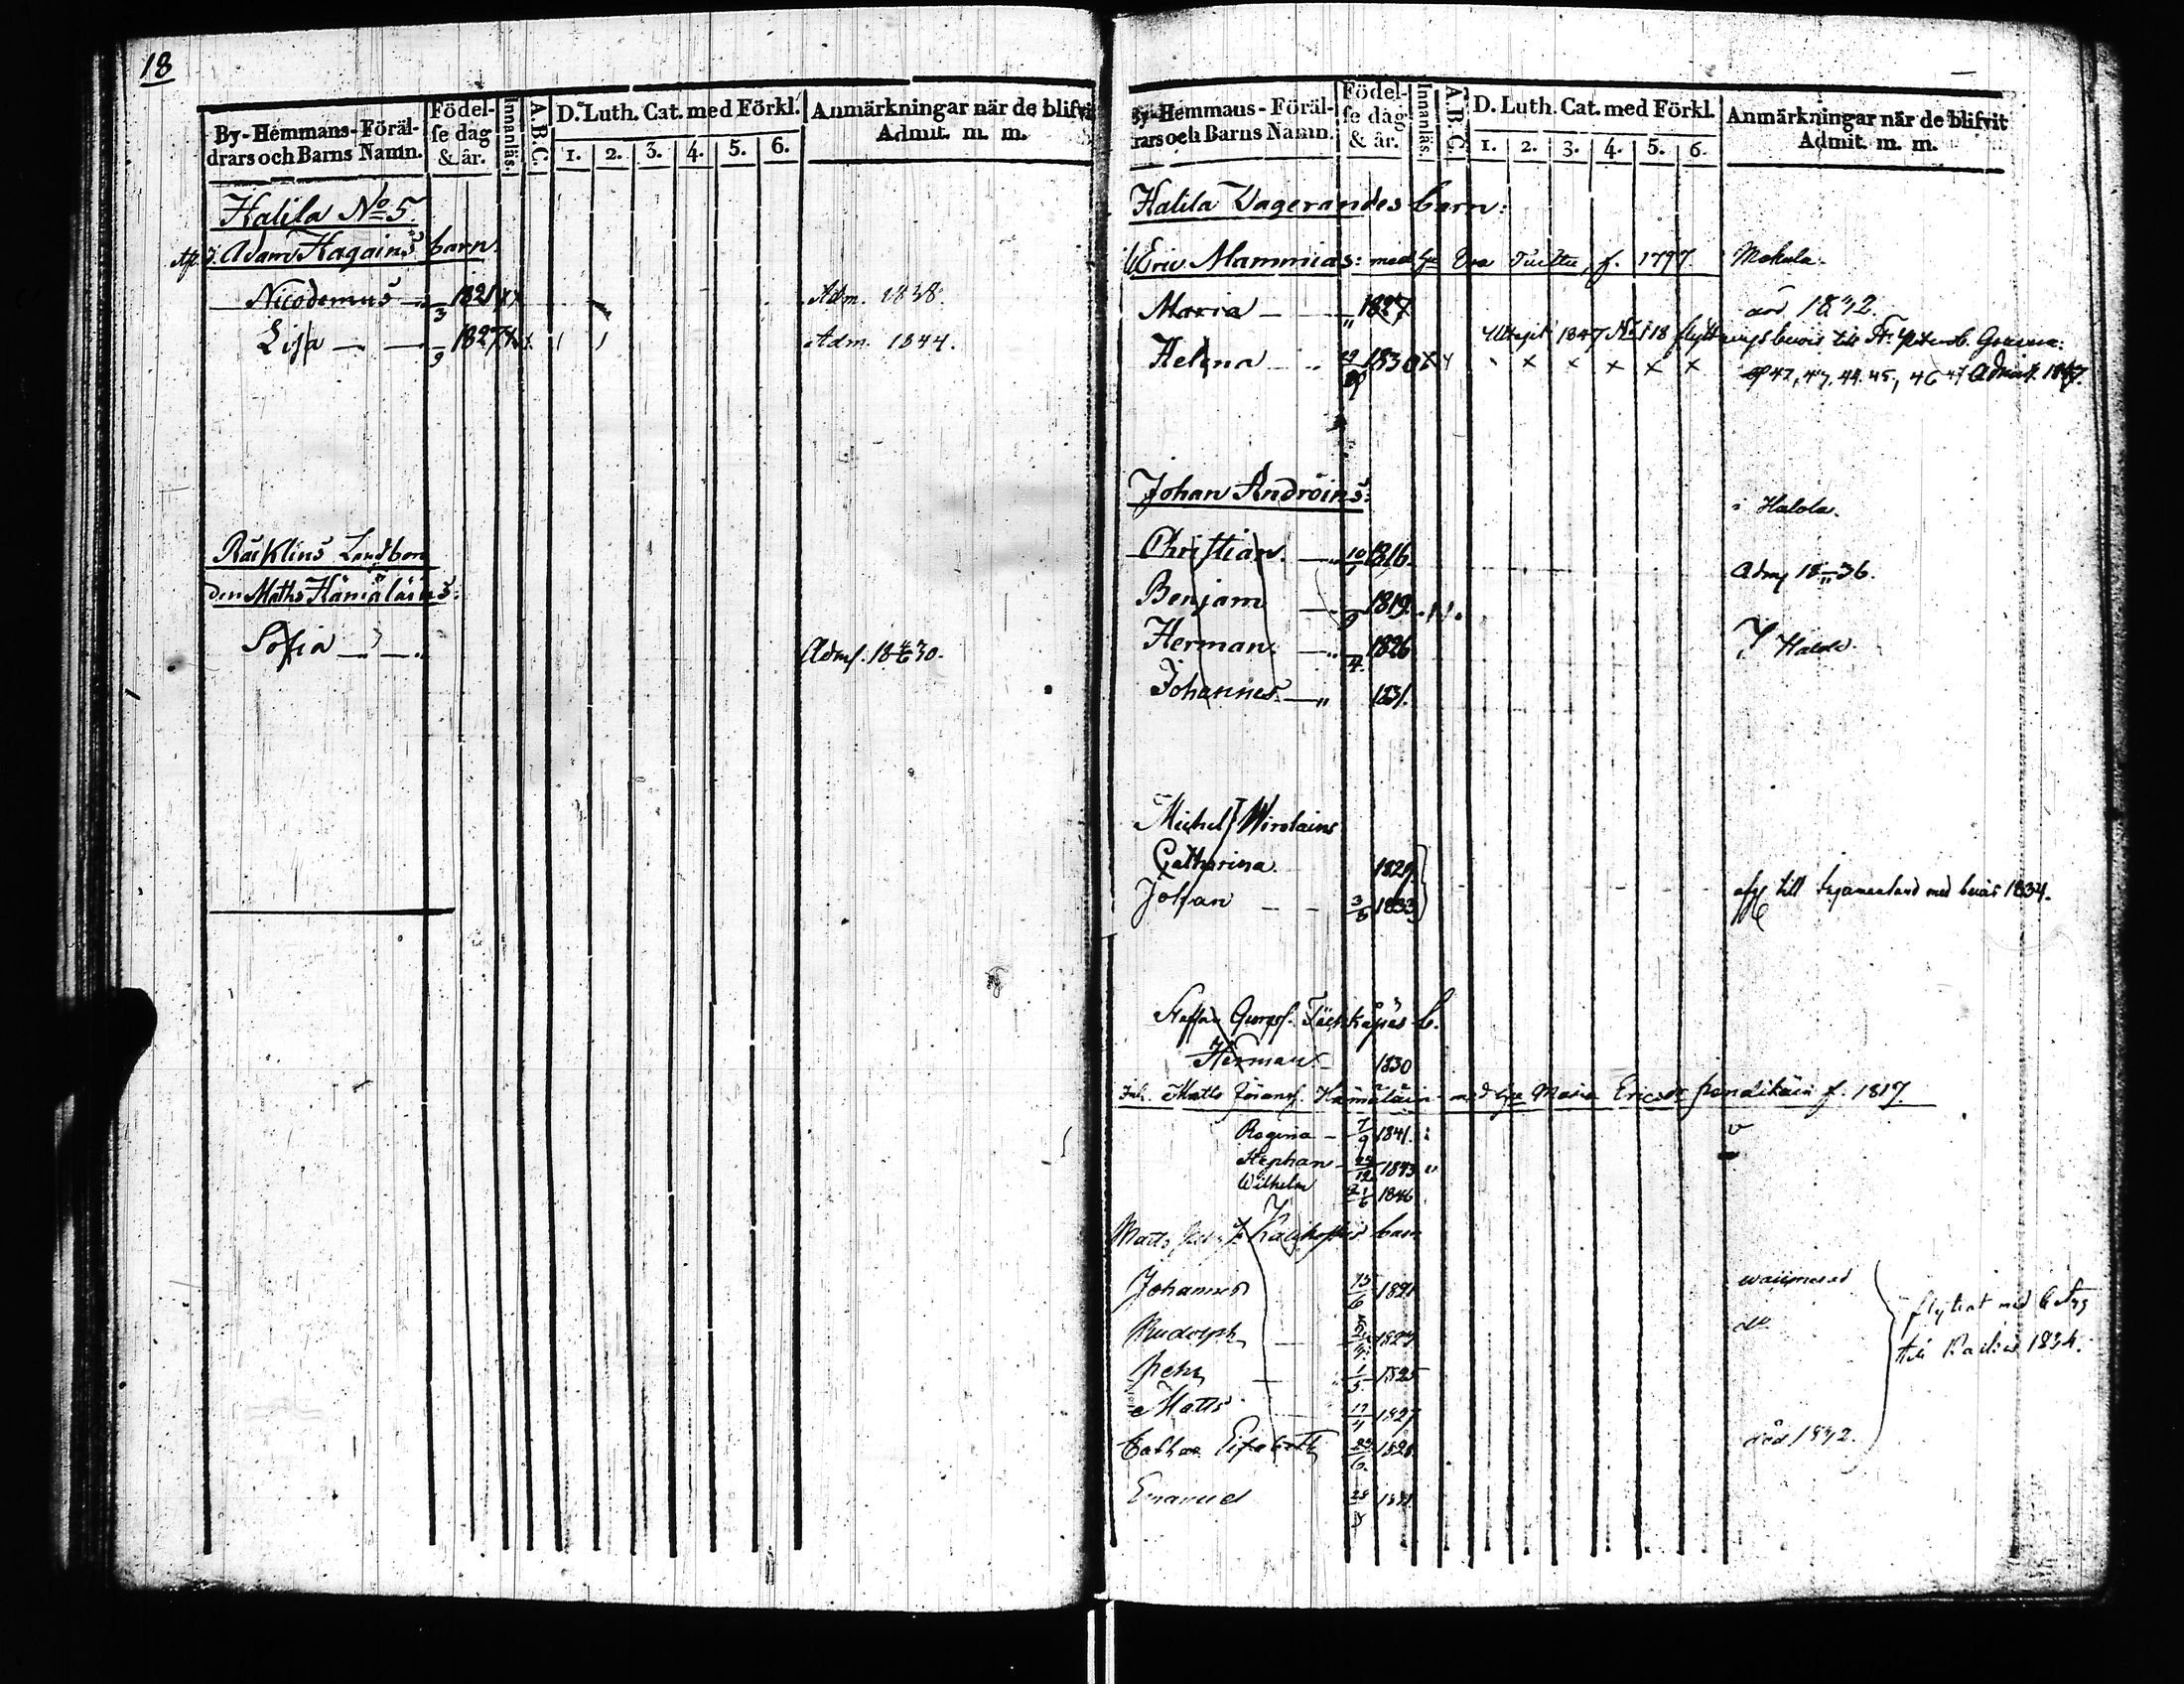 18
By-Hemmans-Föräl-
drars och Barns Namn.
Födel-
se dag
& år.
Innanläs.
A.B.C.
D. Luth. Cat. med Förkl.
1. 2. 3. 4. 5. 6.
Anmärkningar när de blifvit
Admit. m. m.
Halila No 5.
Adam Hagains barn.
Nicodemus 3 1821 Adm. 1838.
Lisa 9 1827 Adm. 1844.
Räiklins Landbon
den Maths Hämäläins:
Sofia Adm. 18 30.
By-Hemmans-Föräl-
drars och Barns Namn.
Födel-
se dag
& år.
Innanläs.
A.B.C.
D. Luth. Cat. med Förkl.
1. 2. 3. 4. 5. 6.
Anmärkningar när de blifvit
Admit. m. m.
Halila Dagerandes barn:
Eric Mammias: med hu Eva f. 1797 Mokula.
Maria 1827 död 1832.
1847 No 118 flyttningsbevis till St. Petersb.
Helena 1830 x x x x x 42, 43, 44. 45, 46 47 Admit. 1847.
Johan Androins:
i Halola.
Christian. 10/1 1816. Adm 18 36.
Benjam 9 1819.
Herman. 4. 1826 Halola.
Johannes 1831.
Michel Wirolains
Catharina 1829
Johan 3/6 1833 till Ingermanland med bevis 1834.
Staffan b.
Herman 1830
Inh. Matts Göransf. Hämäläin med hu Maria Ericsdr f. 1817.
Regina 7/9 1841.
Stephan 1843
Wilhelm 21/6 1846
Matts barn
Johannes 15/6 1821
Rudolph 1824 do
Pehr 1/3 1825
flyttat med
till 1834.
Matts 17/4 1827
Cathar Elisabeth 6. 1828 död 1832.
Emanuel 28 1831